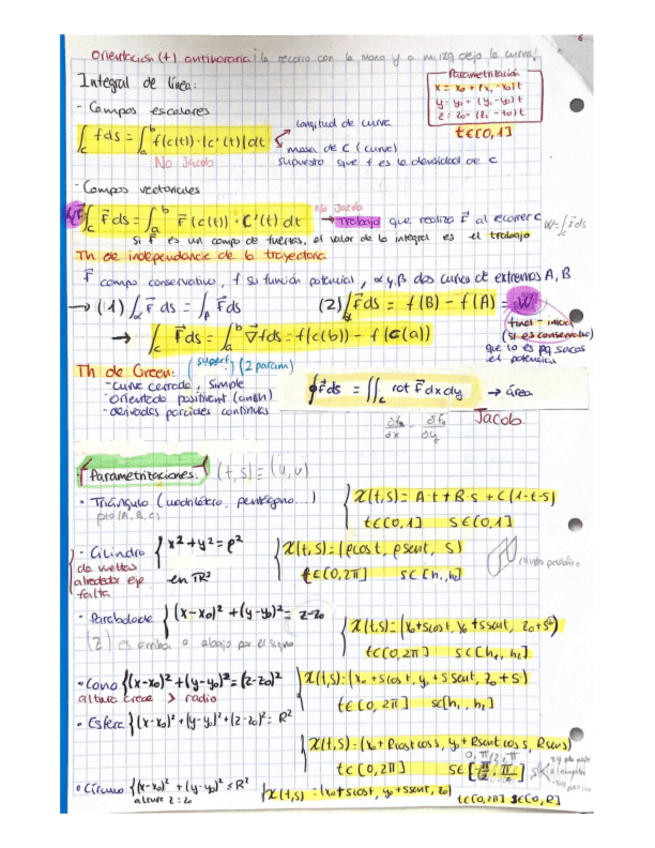 6
Orientación (+) antihoraria ¡lo recorro con la mano y a m izq dejo la curva!
Integral de línea:
Parametrización
x = x₀ + (x₁ - x₀)t
y = y₀ + (y₁ - y₀)t
z = z₀ + (z₁ - z₀)t
t∈[0,1]
- Campos escalares
∫_c fds = ∫_a^b f(c(t))·|c'(t)|dt
longitud de curva
masa de C (curva)
supuesto que f es la densidad de c
No Jacob
- Campos vectoriales
No Jacob
∫_c F⃗ds = ∫_a^b F⃗(c(t))·C'(t)dt → Trabajo que realiza F⃗ al recorrer c W=∫_c F⃗ds
si F⃗ es un campo de fuerzas, el valor de la integral es el trabajo
Th de independencia de la trayectoria
F⃗ campo conservativo, f su función potencial, α y β dos curvas de extremos A, B
→ (1) ∫_α F⃗ds = ∫_β F⃗ds (2) ∫_α F⃗ds = f(B) - f(A) = W
final - inicial
(si es conservativo)
que lo es pq sacas
el potencial
→ ∫_c F⃗ds = ∫_a^b ∇fds = f(c(b)) - f(c(a))
Th de Green: (superf) (2 param)
- curva cerrada, simple
- orientada positivament (antih)
- derivadas parciales continuas
∮F⃗ds = ∬_c rot F⃗dxdy → área
Jacob
Parametrizaciones: (t,s) ≡ (u,v)
· Triángulo (cuadrilátero, pentágono...)
pto (A, B, C)
X(t,s) = A·t + B·s + C(1-t-s)
t∈[0,1] s∈[0,1]
· Cilindro { x² + y² = ρ²
en ℝ²
da vueltas
alrededor eje
falta
X(t,s) = (ρcost, ρsent, s)
t∈[0,2π] s∈[h₁,h₂]
· Paraboloide { (x-x₀)² + (y-y₀)² = z-z₀
(z) es arriba o abajo por el signo
X(t,s) = (x₀+scost, y₀+ssent, z₀+s²)
t∈[0,2π] s∈[h₁,h₂]
· Cono { (x-x₀)² + (y-y₀)² = (z-z₀)²
altura crece > radio
X(t,s) = (x₀+scost, y₀+ssent, z₀+s)
t∈[0,2π] s∈[h₁,h₂]
· Esfera { (x-x₀)² + (y-y₀)² + (z-z₀)² = R²
X(t,s) = (x₀+Rcostcoss, y₀+Rsentcoss, Rsens)
t∈[0,2π] s∈[-π/2, π/2]
· Círculo { (x-x₀)² + (y-y₀)² ≤ R²
altura z=z₀
X(t,s) = (x₀+scost, y₀+ssent, z₀) t∈[0,2π] s∈[0,R]